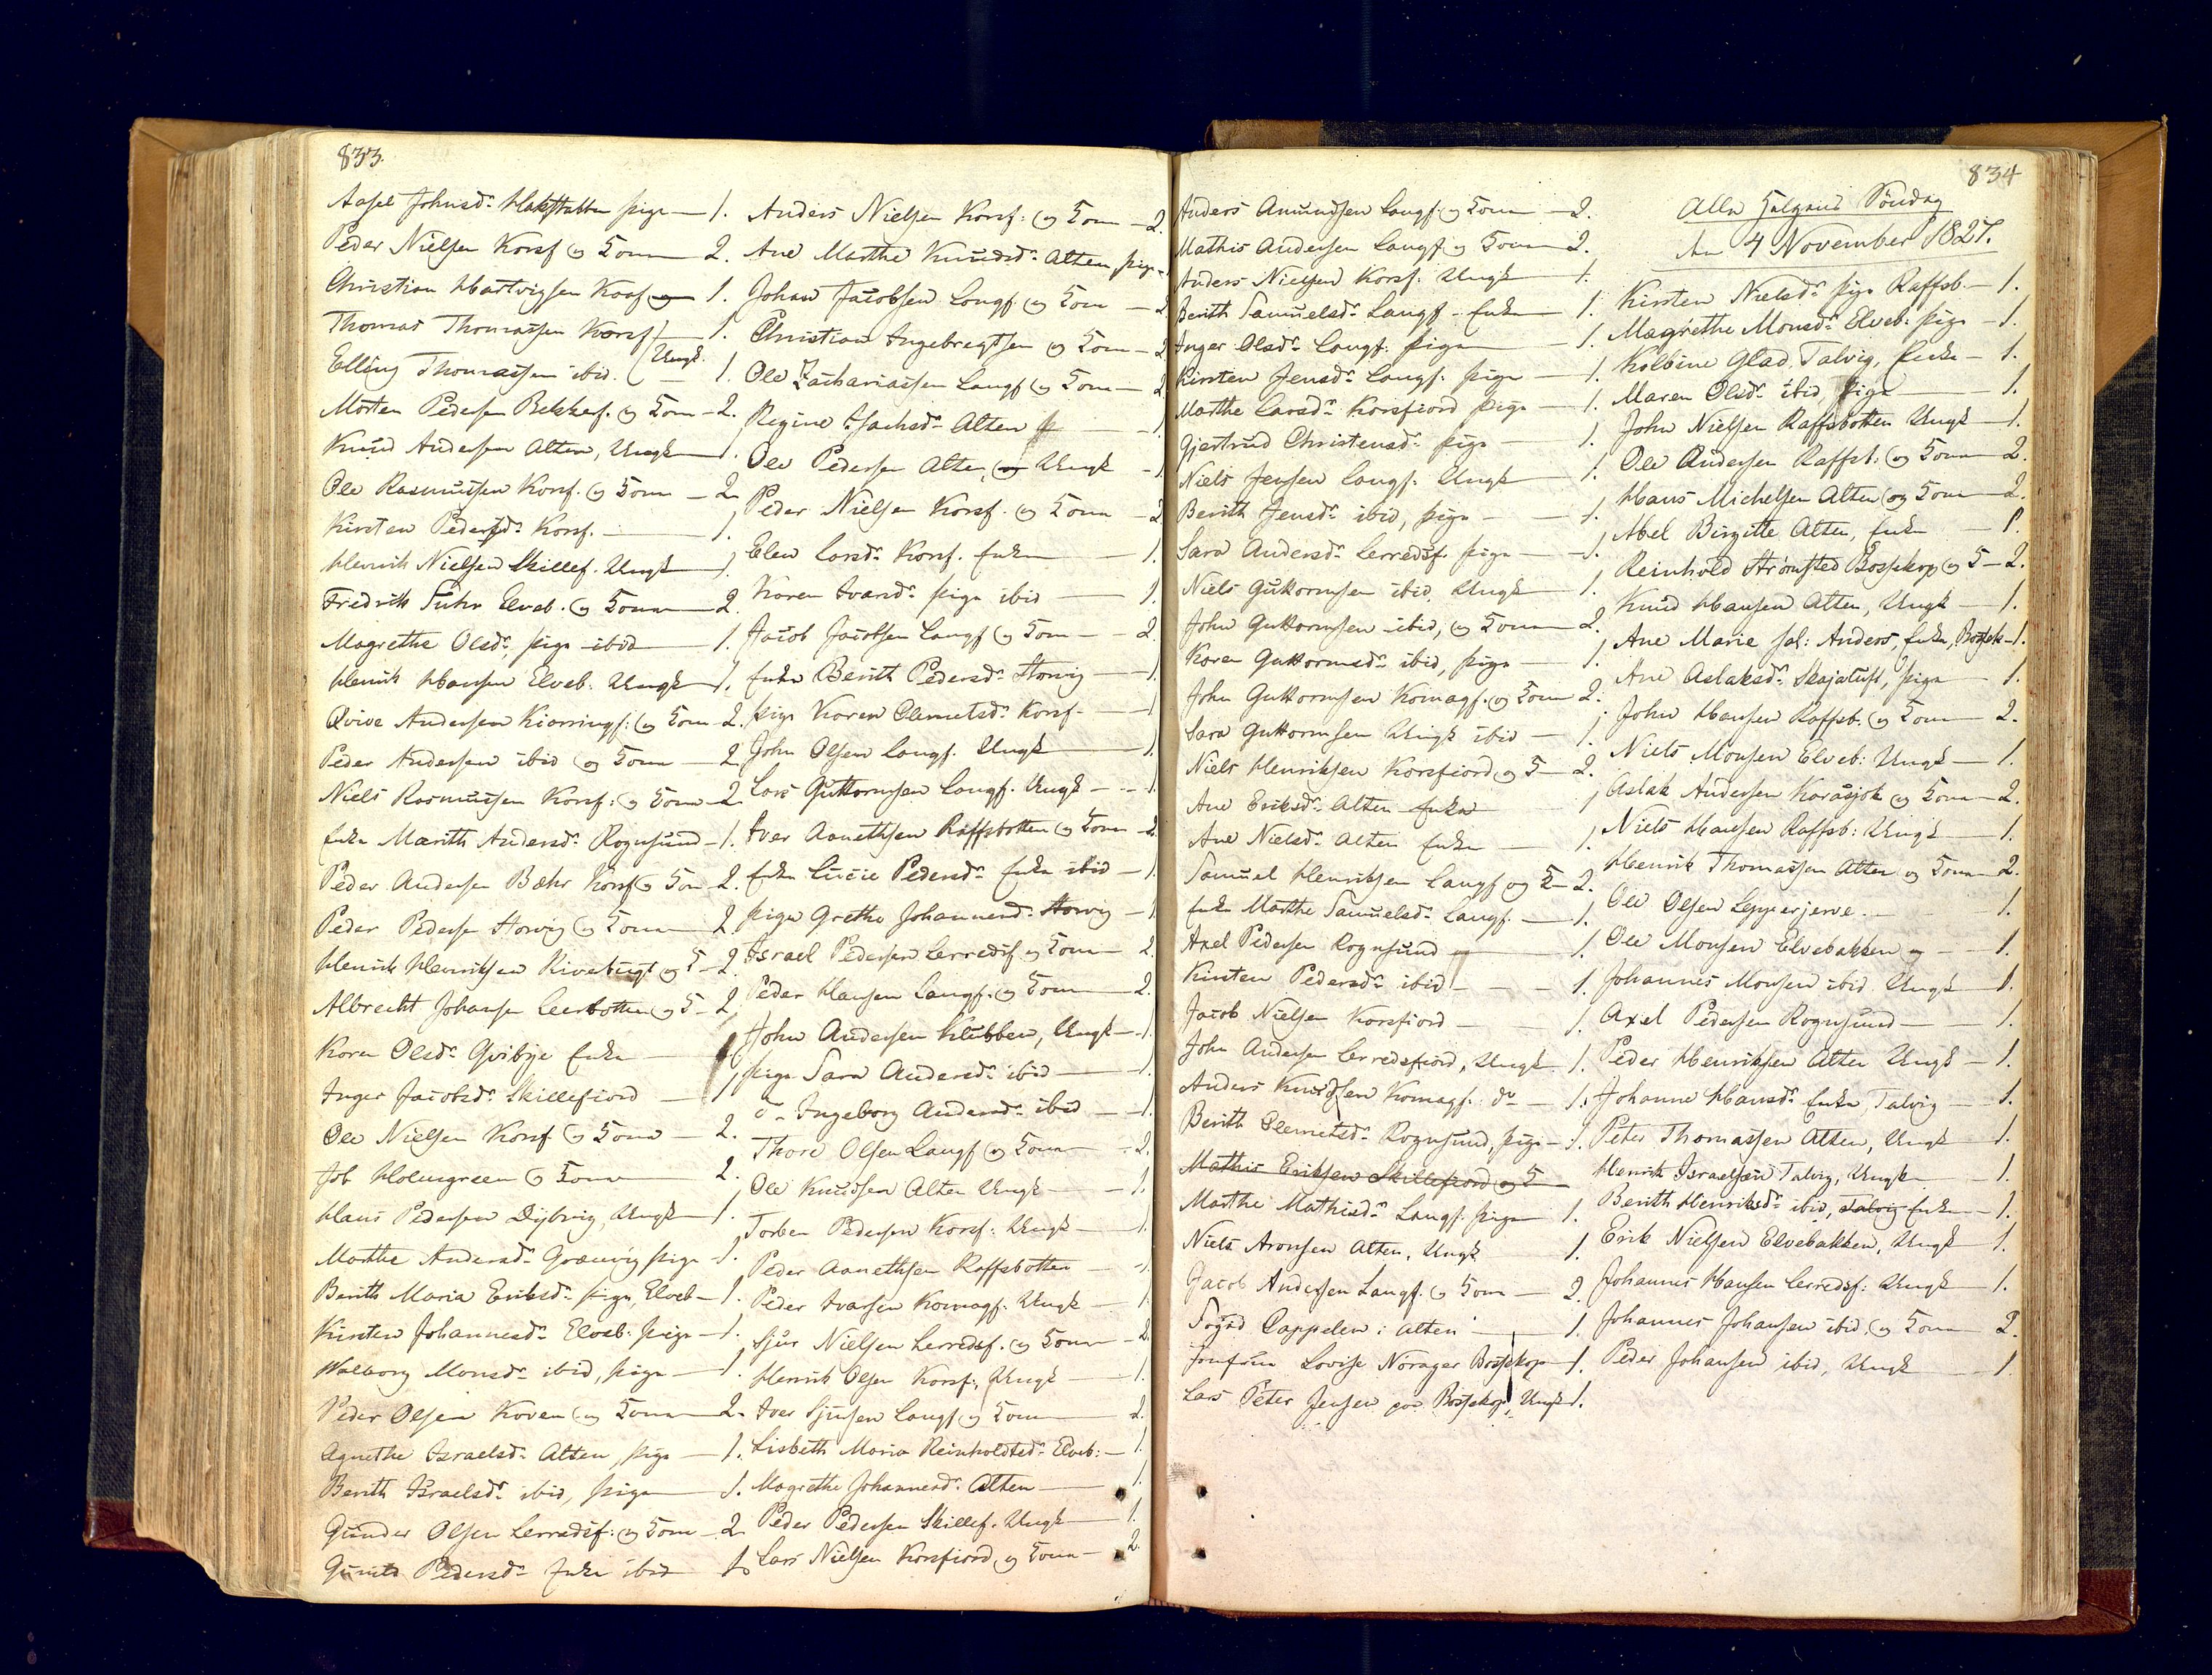 833.
Aasel Johnsd. Hakstabben pige — 1.
Peder Nielsen Korsf og Kone 2.
Christian Hartvigsen Koaf 1.
Thomas Thomassen Korsf — 1.
Elling Thomassen ibid. Ungk. — 1.
Morten Pedersen Bekkerf. og Kone — 2.
Knud Andersen Alten, Ungk — 1.
Ole Rasmussen Korsf. og Kone — 2
Kirsten Pedersd. Korsf. — 1.
Henrik Nielsen Skillef. Ungk — 1.
Fredrik Suhr Elveb. og Kone — 2.
Magrethe Olsd., pige ibid — 1.
Henrik Hansen Elveb. Ungk — 1.
Qvive Andersen Kiorringf: og Kone — 2.
Peder Andersen ibid og Kone — 2
Niels Rasmussen Korsf: og Kone — 2
Enke Marith Andersd. Rognsund — 1.
Peder Andersen Bæhr Korsf og Kone — 2.
Peder Pedersen Storvig og Kone 2.
Henrik Henriksen Rivebugt og K — 2.
Albrecht Johansen Leerbotten og K — 2
Karen Olsd. Qvibye Enke — 1
Inger Jacobsd. Skillefiord — 1
Ole Nielsen Korsf og Kone — 2.
Job Holmgreen og Kone 2.
Hans Pedersen Dybvig, Ungk — 1.
Marthe Andersd. pige — 1.
Berith Maria Eriksd. pige, Elveb — 1.
Kirsten Johannesd. Elveb. pige — 1.
Walborg Monsd. ibid, pige — 1.
Peder Olsen Koven og Kone — 2.
Agnethe Israelsd. Alten, pige — 1.
Berith Israelsd. ibid, pige 1.
Gunder Olsen Lerredsf: og Kone — 2
Pedersd. Enke ibid 1.
Anders Nielsen Korsf: og Kone — 2.
Ane Marthe Knudsd. Alten pige — 1
Johan Jacobsen Langf. og Kone — 2
Christian Ingebregtsen og Kone — 2
Ole Zachariassen Langf og Kone — 2
Regine Isachsd. Alten p — 1
Ole Pedersen Alten, Ungk — 1
Peder Nielsen Korsf. og Kone — 2
Elen Larsd. Korsf. Enke — 1.
Karen Ivarsd. pige ibid — 1.
Jacob Jacobsen Langf og Kone — 2.
Enke Berith Pedersd. Storvig — 1
pige Karen Clemetsd. Korsf. — 1
John Olsen Langf. Ungk — 1.
Lars Guttormsen Langf. Ungk — 1.
Iver Aanethsen Raffsbotten og Kone — 2
Enke Lucie Pedersd. Enke ibid — 1.
pige Grethe Johannesd. Storvig — 1.
Israel Pedersen Lerredsf og Kone — 2.
Peder Hansen Langf. og Kone 2.
John Andersen Klubben, Ungk — 1.
pige Sara Andersd. ibid — 1.
do Ingeborg Andersd. ibid — 1.
Thore Olsen Langf og Kone — 2.
Ole Knudsen Alten Ungk — 1.
Torben Pedersen Korsf: Ungk — 1.
Peder Aanethsen Raffsbotten — 1.
Peder Ivarsen Komagf: Ungk — 1
Sjur Nielsen Lerredsf. og Kone — 2.
Henrik Olsen Korsf:, Ungk — 1.
Iver Sjursen Langf og Kone 2.
Lisbeth Maria Reinholdtsd. Elveb: — 1.
Magrethe Johannesd. Alten — 1.
Peder Pedersen Skillef. Ungk — 1.
Lars Nielsen Korsfiord, og Kone — 2.
834
Anders Amundsen Langf. og Kone — 2.
Mathis Andersen Langf og Kone 2.
Anders Nielsen Korsf. Ungk 1.
Berith Samuelsd. Langf. Enke 1.
Inger Olsd. Langf. pige — 1.
Kirsten Jensd. Langf: pige — 1.
Marthe Larsd. Korsfiord pige — 1.
Gjertrud Christensd. pige — 1.
Niels Jensen Langf. Ungk — 1.
Berith Jensd. ibid, pige — 1.
Sara Andersd. Lerredsf. pige — 1.
Niels Guttormsen ibid, Ungk — 1.
John Guttormsen ibid, og Kone — 2.
Karen Guttormsd. ibid, pige — 1.
John Guttormsen Komagf. og Kone 2.
Sara Guttormsen Ungk ibid — 1.
Niels Henriksen Korsfiord og K — 2.
Ane Eriksd. Alten Enke 1
Ane Nielsd. Alten Enke — 1.
Samuel Henriksen Langf og K — 2.
Enke Marthe Samuelsd. Langf. — 1.
Axel Pedersen Rognsund og 1.
Kirsten Pedersd. ibid — 1.
Jacob Nielsen Korsfiord — 1.
John Andersen Lerredsfiord, Ungk. 1.
Anders Knudsen Komagf. do — 1.
Berith Clemetsd. Rognsund, pige — 1.
Mathis Eriksen Skillefiord og K
Marthe Mathisd. Langf. pige 1.
Niels Aronsen Alten, Ungk 1.
Jacob Andersen Langf. og Kone — 2.
Foged Cappelen i Alten — 1.
Jomfrue Lovise Norager Bossekop — 1.
Lars Peter Jensen paa Bossekop, Ungk 1.
Alle Helgens Søndag
den 4 November 1827.
Kirsten Nielsd. pige Raffsb. — 1.
Magrethe Monsd. Elveb: pige — 1.
Kolbine Glad Talvig, Enke — 1.
Maren Olsd. ibid, pige — 1.
John Nielsen Raffsbotten Ungk — 1.
Ole Andersen Raffsb: og Kone 2.
Hans Michelsen Alten og Kone 2.
Abel Birgitte Alten, Enke — 1.
Reinhold Strömsted Bossekop og K — 2.
Knud Hansen Alten, Ungk — 1.
Ane Marie sal: Anders, Enke, Bossek — 1.
Ane Aslaksd. Skajaluft, pige 1.
John Hansen Raffsb. og Kone 2.
Niels Monsen Elveb: Ungk — 1.
Aslak Andersen Karasjok og Kone — 2.
Niels Hansen Raffsb: Ungk — 1.
Henrik Thomassen Alten og Kone — 2.
Ole Olsen Leppejerve. — 1.
Ole Monsen Elvebakken og — 1.
Johannes Monsen ibid. Ungk 1.
Axel Pedersen Rognsund — 1.
Peder Henriksen Alten Ungk — 1.
Johanne Hansd. Enke, Talvig — 1.
Peter Thomassen Alten, Ungk 1.
Henrik Israelsen Talvig, Ungk. — 1.
Berith Henriksd. ibid, Talvig Enke — 1.
Erik Nielsen Elvebakken, Ungk 1.
Johannes Hansen Lerredsf: Ungk — 1.
Johannes Johansen ibid, og Kone 2.
Peder Johansen ibid, Ungk — 1